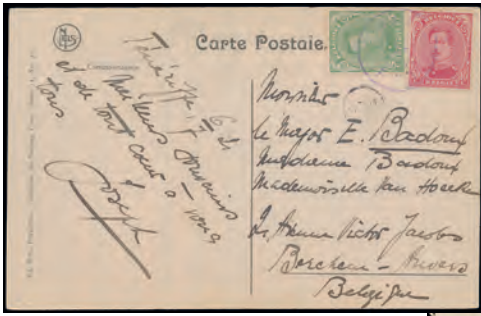 Carte Postale.
Ténériffe, 6
Meilleurs souvenirs
et de tout cœur à vous
tous
Joseph
Monsieur
le Major E. Badoux
Madame Badoux
Mademoiselle Van Hoecke
Avenue Victor Jacobs
Berchem - Anvers
Belgique